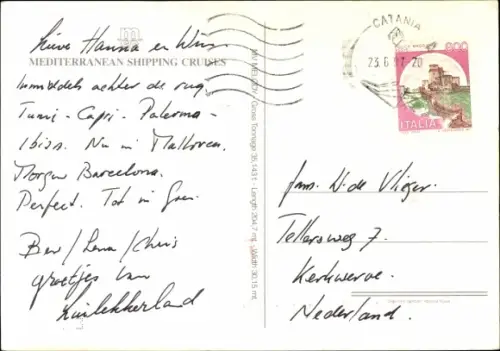 Lieve Hanna en Wim
MEDITERRANEAN SHIPPING CRUISES
Inmiddels achter de rug
Tunis - Capri - Palerma -
Ibiza. Nu in Mallorca.
Morgen Barcelona.
Perfect. Tot in Goes.
Ber / Lena / Chris
groetjes van
Luilekkerland
MV MELODY / Gross Tonnage 35,143 t - Length 204,7 mt - Width 30,15 mt
CATANIA
23.6.97 20
600
ITALIA
fam. W. de Vlieger.
Tellersweg 7.
Kerkwerve.
Nederland.